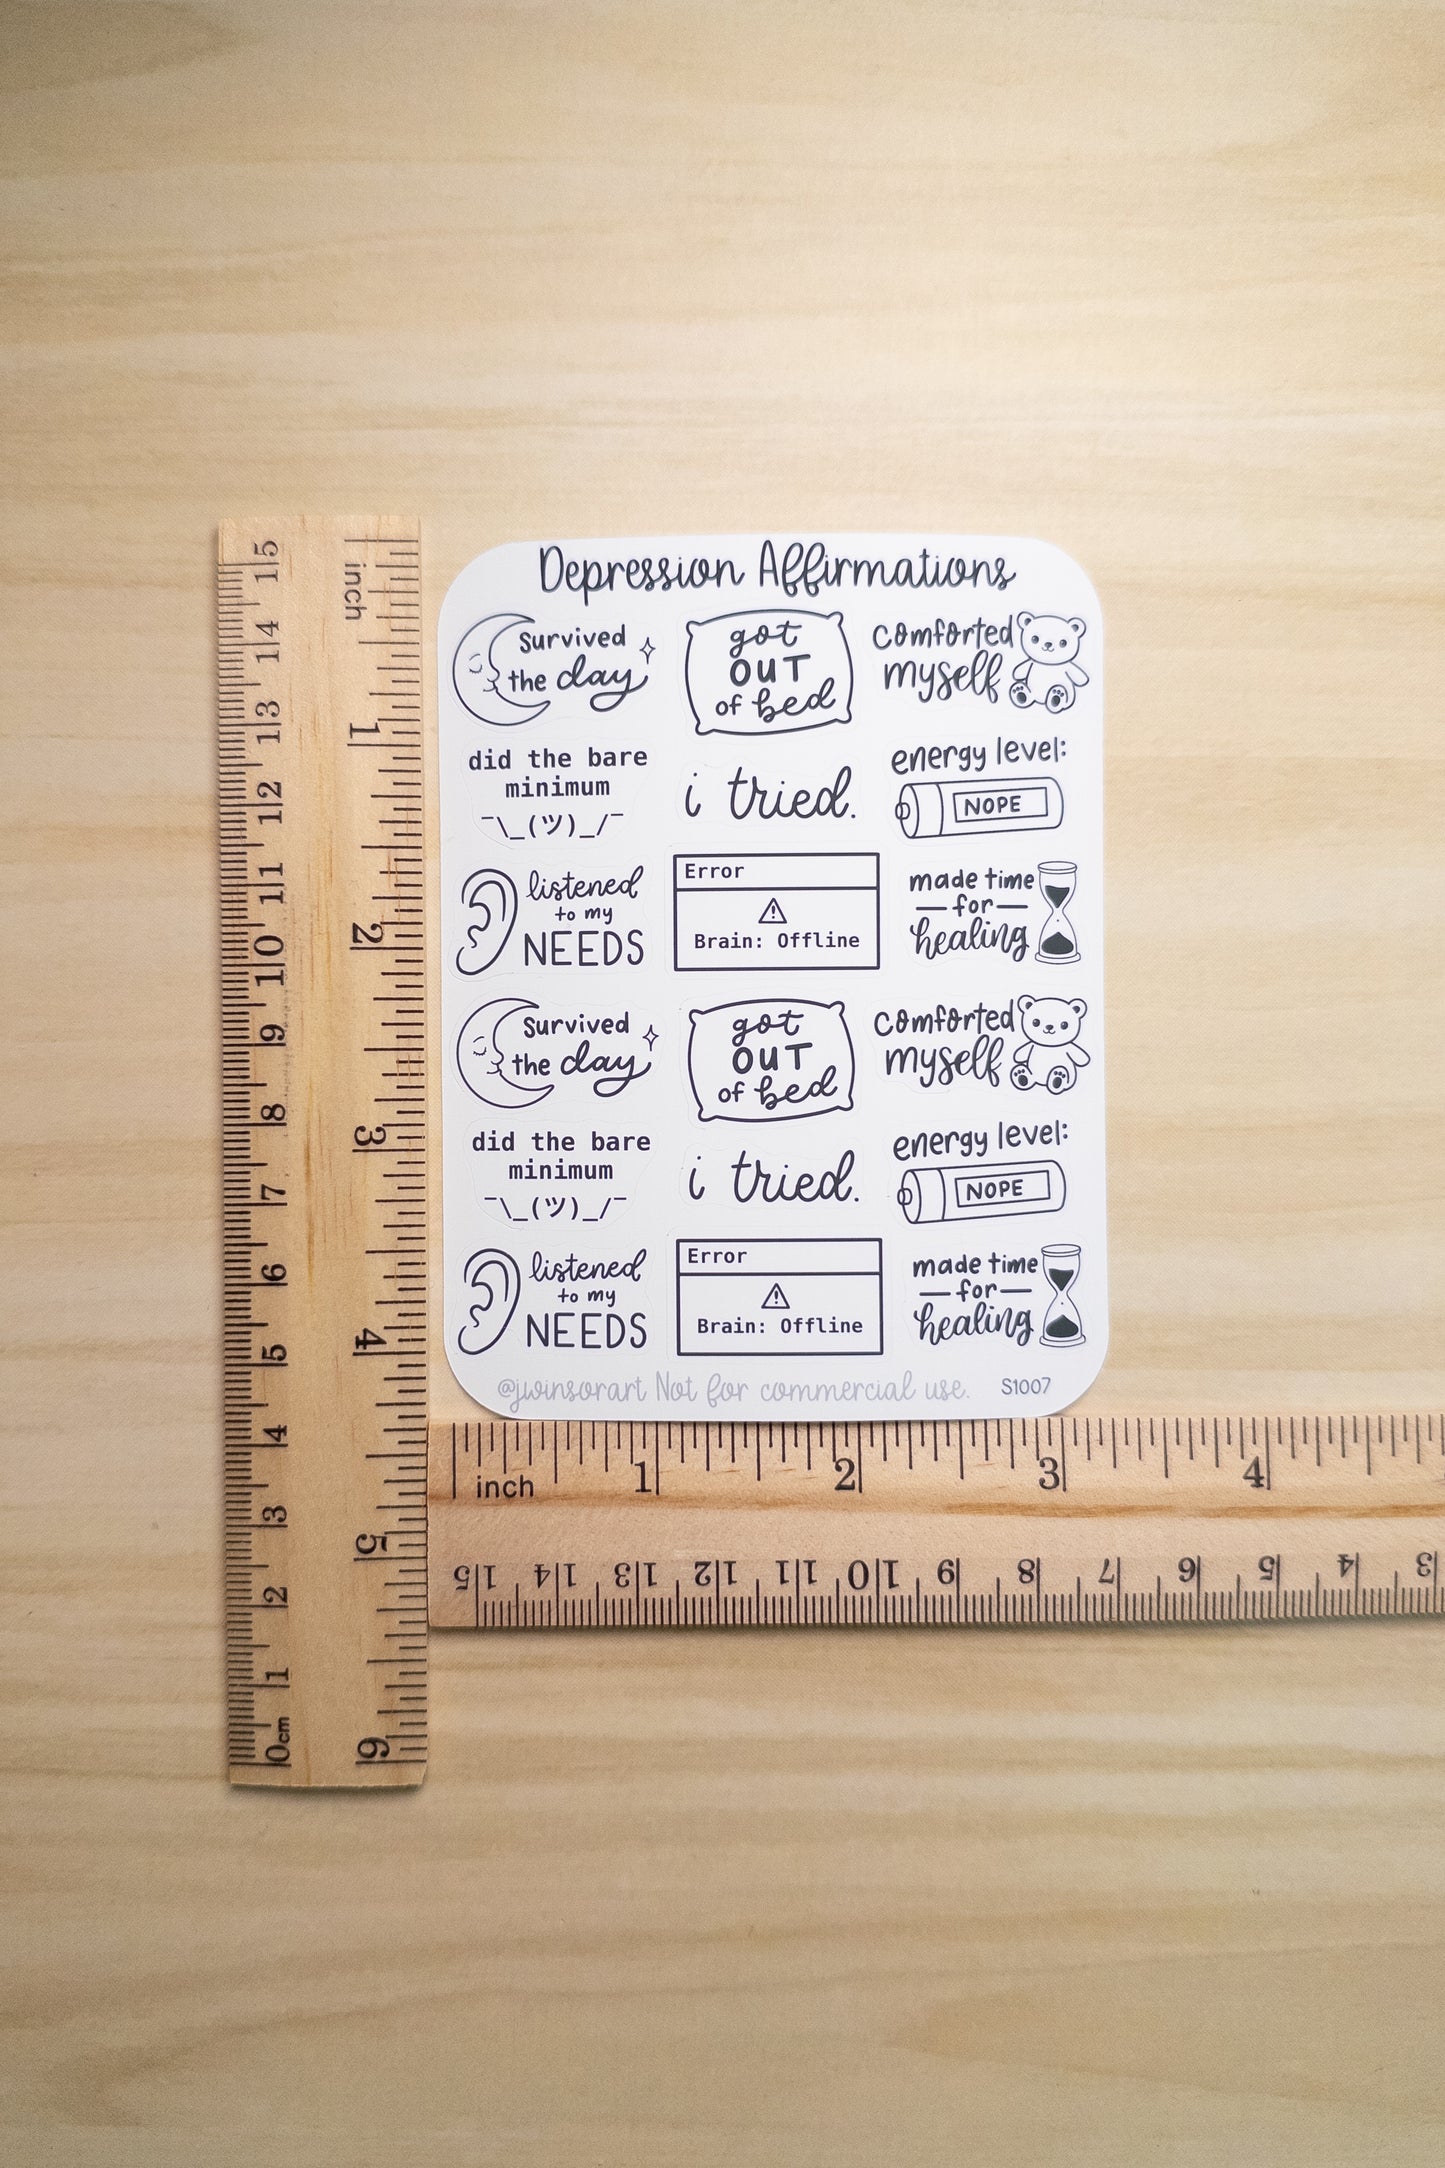 Depression Affirmations
Survived
the day
got
OUT
of bed
comforted
myself
did the bare
minimum
¯\_(ツ)_/¯
i tried.
energy level:
NOPE
listened
to my
NEEDS
Error
Brain: Offline
made time
for
healing
Survived
the day
got
OUT
of bed
comforted
myself
did the bare
minimum
¯\_(ツ)_/¯
i tried.
energy level:
NOPE
listened
to my
NEEDS
Error
Brain: Offline
made time
for
healing
@jwinsorart Not for commercial use. S1007
inch
1
2
3
4
5
6
15
14
13
12
11
10
9
8
7
6
5
4
3
2
1
0cm
inch
1
2
3
4
15
14
13
12
11
10
9
8
7
6
5
4
3